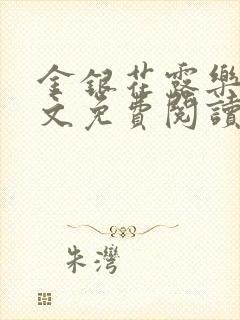 金銀花露樂
文免費閱讀
朱灣